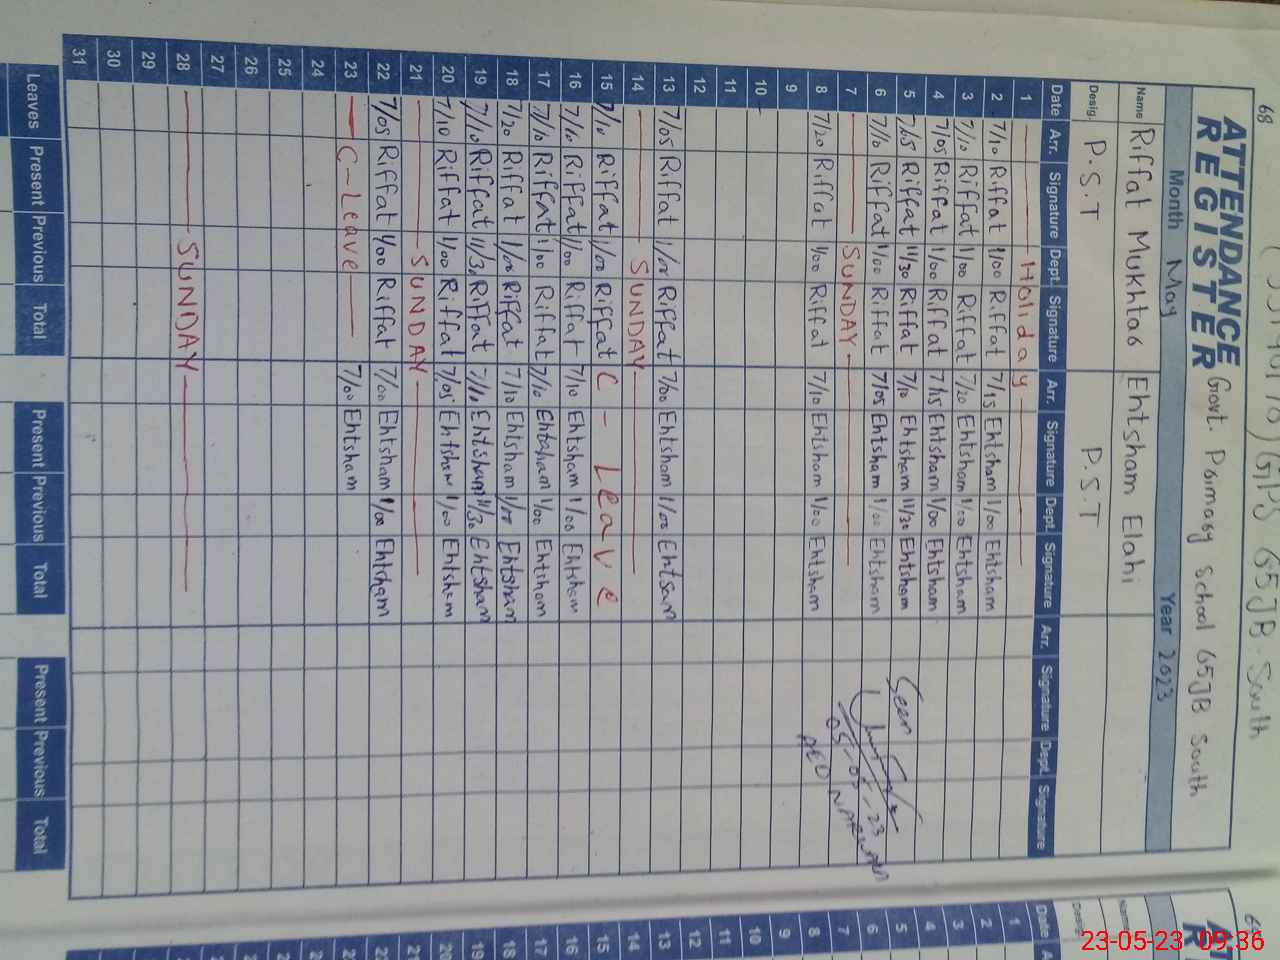 68
GPS 65JB South
ATTENDANCE REGISTER
Govt. Primary School 65JB South
Month May Year 2023
Name Riffat Mukhtar Ehtsham Elahi
Desig. P.S.T P.S.T
Date Arr. Signature Dept. Signature Arr. Signature Dept. Signature Arr. Signature Dept. Signature
1 Holiday
2 7/10 Riffat 1/00 Riffat 7/15 Ehtsham 1/00 Ehtsham
3 7/10 Riffat 1/00 Riffat 7/20 Ehtsham 1/00 Ehtsham
4 7/05 Riffat 1/00 Riffat 7/15 Ehtsham 1/00 Ehtsham
5 7/05 Riffat 11/30 Riffat 7/10 Ehtsham 11/30 Ehtsham Seen
6 7/10 Riffat 1/00 Riffat 7/05 Ehtsham 1/00 Ehtsham
7 SUNDAY
8 7/20 Riffat 1/00 Riffat 7/10 Ehtsham 1/00 Ehtsham AEO
9
10
11
12
13 7/05 Riffat 1/00 Riffat 7/00 Ehtsham 1/00 Ehtsam
14 SUNDAY
15 7/10 Riffat 1/00 Riffat C - Leave
16 7/10 Riffat 1/00 Riffat 7/10 Ehtsham 1/00 Ehtsham
17 7/10 Riffat 1/00 Riffat 7/10 Ehtsham 1/00 Ehtsham
18 7/20 Riffat 1/00 Riffat 7/10 Ehtsham 1/00 Ehtsham
19 7/10 Riffat 11/30 Riffat 7/10 Ehtsham 11/30 Ehtsham
20 7/10 Riffat 1/00 Riffat 7/05 Ehtsham 1/00 Ehtsham
21 SUNDAY
22 7/05 Riffat 1/00 Riffat 7/00 Ehtsham 1/00 Ehtsham
23 C-Leave 7/00 Ehtsham
24
25
26
27
28 SUNDAY
29
30
31
Leaves Present Previous Total Present Previous Total Present Previous Total
Date
Desig.
Name
1
2
3
4
5
6
7
8
9
10
11
12
13
14
15
16
17
18
19
20
21
23-05-23 09:36